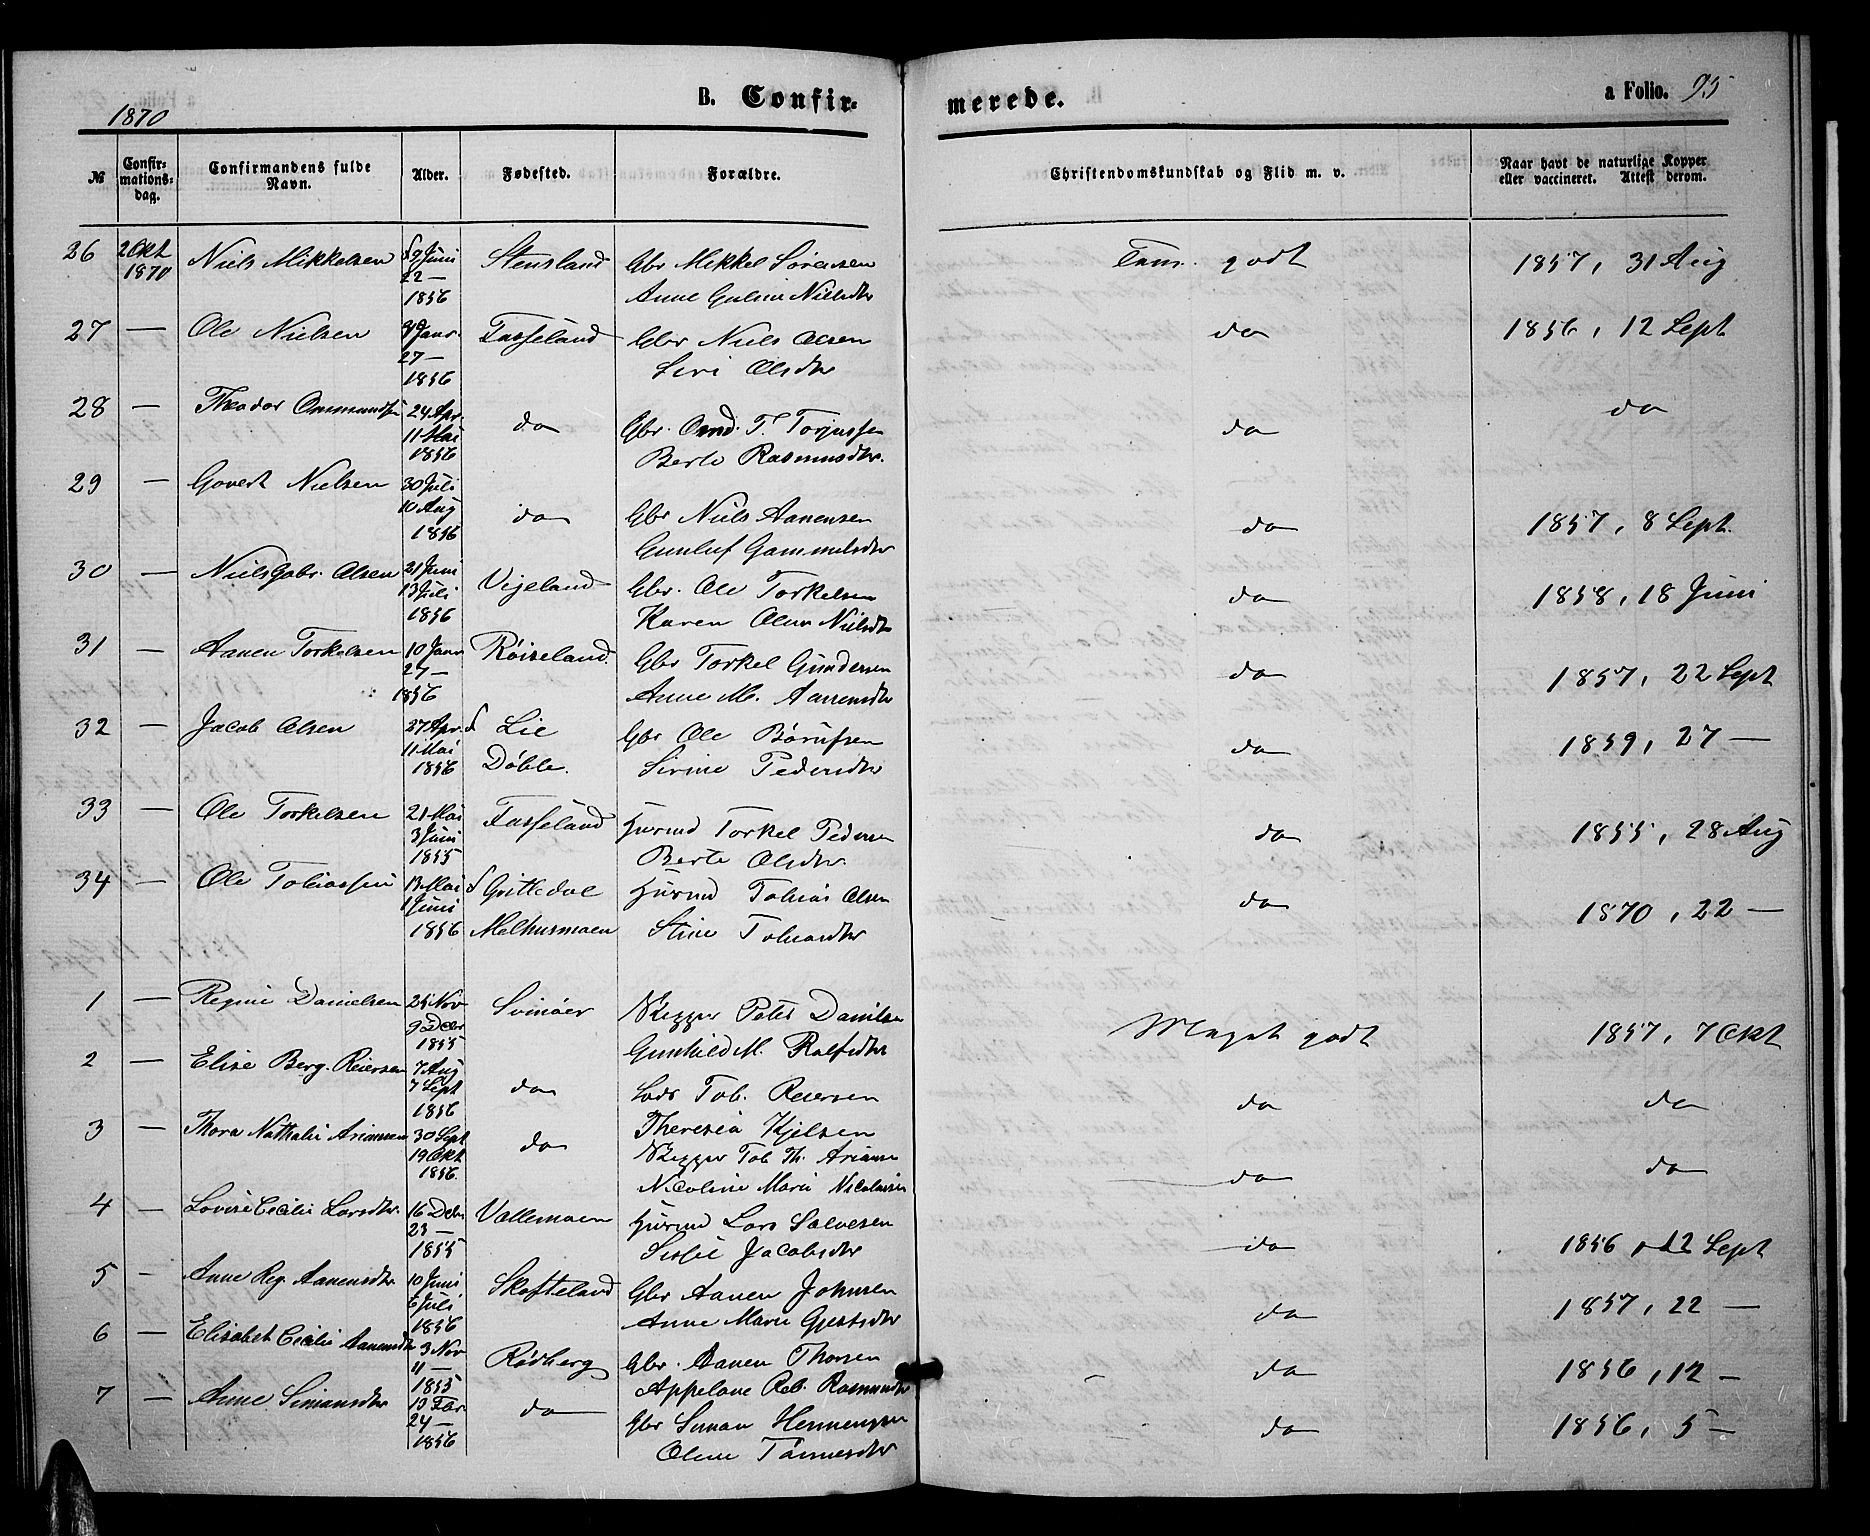 1870
B. Confir-
merede.
a Folio. 95
№
Confir-
mations-
dag.
Confirmandens fulde
Navn.
Alder.
Fødested.
Forældre.
Christendomskundskab og Flid m. v.
Naar havt de naturlige Kopper
eller vaccineret. Attest derom.
26 2 Okt 1870 Niels Mikkelsen 9 Juni 22 — 1856 Stensland Gbr Mikkel Sørensen Tem. godt 1857, 31 Aug
Anne Guline Nielsdtr
27 — Ole Nielsen 9 Janr. 27 — 1856 Fasseland Gbr Niels Olsen do 1856, 12 Sept
Siri Olsdtr
28 — Theodor Ommundsen 24 Apr. 11 Mai 1856 do Gbr. Omd. T. Torjussen do do
Berte Rasmusdtr.
29 — Govert Nielsen 30 Juli 10 Aug 1856 do Gbr Niels Aanensen do 1857, 8 Sept.
Gunluf Gammelsdtr
30 — Niels Gabr. Olsen 21 Juni 13 Juli 1856 Vigeland Gbr. Ole Torkelsen do 1858, 18 Juni
Karen Oline Nielsdtr
31 — Aanen Torkelsen 10 Janr 27 — 1856 Røiseland Gbr Torkel Gundersen do 1857, 22 Sept
Anne M. Aanensdtr
32 — Jacob Olsen 27 Apr. 11 Mai 1856 f Lie Gbr Ole Børufsen do 1859, 27 —
Døble. Sirine Pedersdtr
33 — Ole Torkelsen 21 Mai 3 Juni 1855 Fasseland Husmd Torkel Pedersen do 1855, 28 Aug
Berte Olsdtr.
34 — Ole Tobiassen 13 Mai 1 Juni 1856 f Gvittedal Husmd Tobias Olsen do 1870, 22 —
Melhusmoen Stine Tobiasdtr
1 — Regine Danielsen 25 Nov 9 Debr 1855 Svinøer Skipper Peter Danielsen Meget godt 1857, 7 Okt
Gunhild M. Rolfsdtr
2 — Elise Berg. Reiersen 7 Aug 7 Sept 1856 do Lods Tob. Reiersen do do
Theresia Kjelsen
3 — Thora Nathalie Ariansen 30 Sept 19 Okt 1856. do Skipper Tob. Th. Ariansen do do
Nicoline Marie Nicolaisen
4 — Lovise Cecilie Larsdtr 16 Debr 23 — 1855 Vallemoen Husmd Lars Salvesen do 1856, 12 Sept
Sissel Jacobsdtr
5 — Anne Reg. Aanensdtr 10 Juni 6 Juli 1856 Skofteland Gbr Aanen Johnsen do 1857, 22 —
Anne Marie Gjertsdtr
6 — Elisabet Cecilie Aanensdtr 3 Nov 11 — 1855 Rødberg Gbr. Aanen Thorsen do 1856, 12 —
Appelone Reb. Rasmusdtr
7 — Anne Simonsdtr 13 Febr 24 — 1856 do Gbr Simon Henningsen do 1856, 5 —
Oline Tønnesdtr